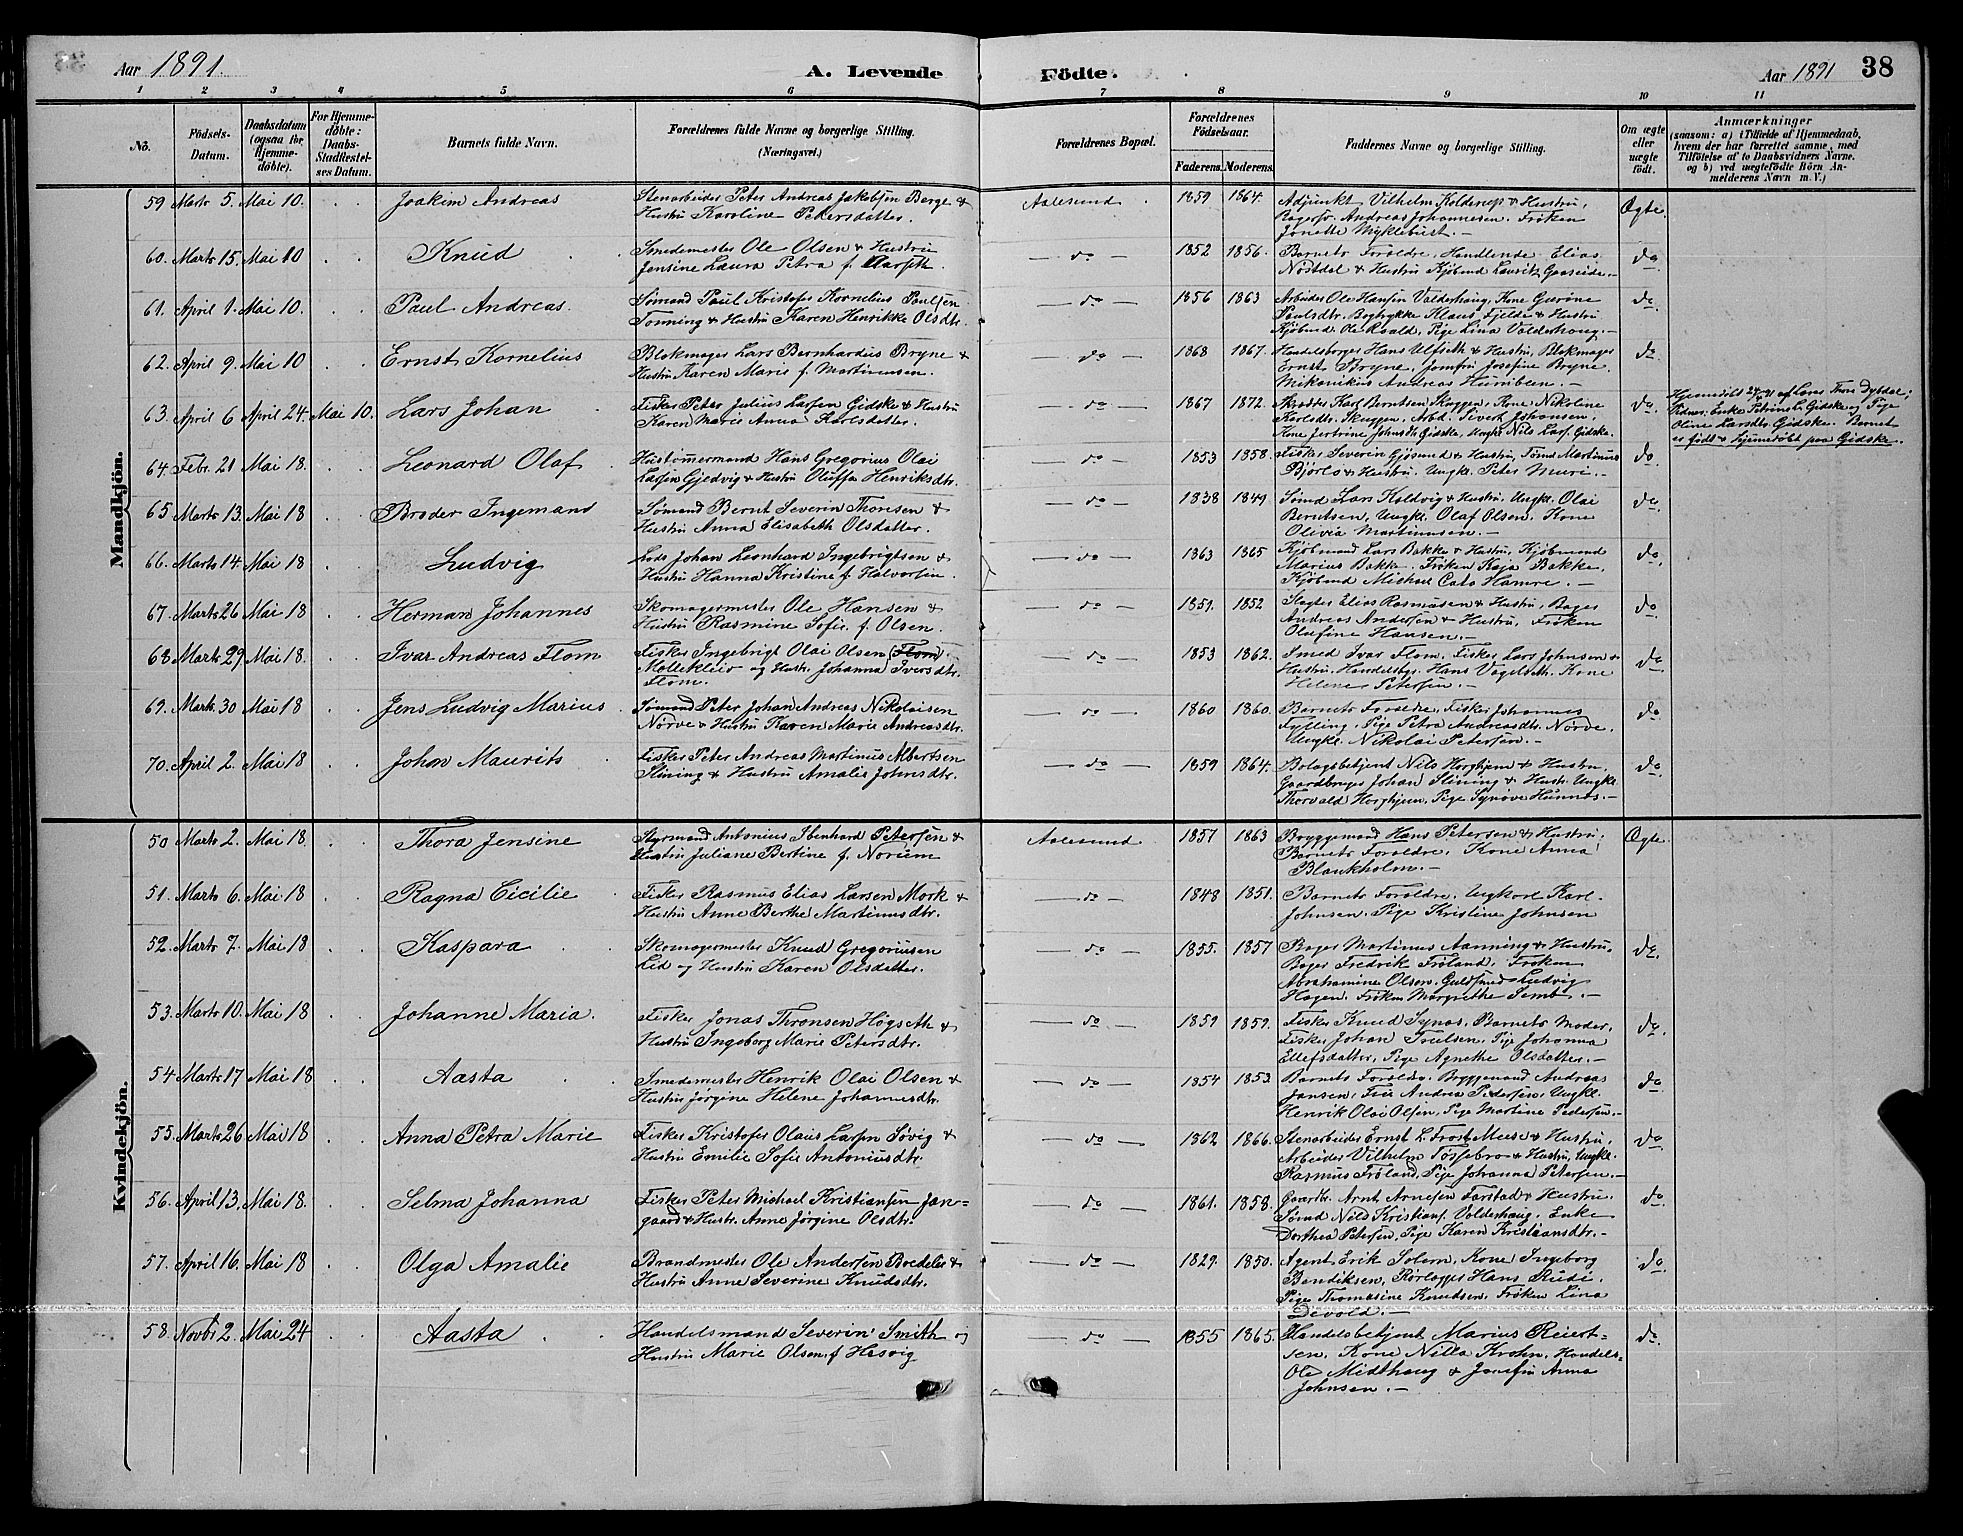 Aar 1891. A. Levende Födte. Aar 1891 38
1 2 3 4 5 6 7 8 9 10 11
No. Födsels-Datum. Daabsdatum (ogsaa for Hjemmedöbte). For Hjemmedöbte: Daabs-Stadfæstelses Datum. Barnets fulde Navn. Forældrenes fulde Navne og borgerlige Stilling. (Næringsvei.) Forældrenes Bopæl. Forældrenes Födselsaar. Faderens. Moderens. Faddernes Navne og borgerlige Stilling. Om ægte eller uægte födt. Anmærkninger (saasom: a) i Tilfælde af Hjemmedaab, hvem der har forrettet samme, med Tilföielse af to Daabsvidners Navne, og b) ved uægtefödte Börn Anmelderens Navn m. V.)
Mandkjön.
59 Marts 5. Mai 10. Joakim Andreas Stenarbeider Peter Andreas Jakobsen Berge & Aalesund 1859 1864. Adjunkt Vilhelm Kolderup & Hustru, Ægte.
Hustru Karoline Petersdatter. Bagersv. Andreas Johannesen. Fröken
Jonette Myklebust.
60. Marts 15. Mai 10 Knud Smedemester Ole Olsen & Hustru do 1852 1856. Barnets Foreldre, Handlende Elias do
Jensine Laura Petra f. Aarseth Nöstdal & Hustru Kjöbmd Laurik Gaaseide.
61. April 1. Mai 10. Paul Andreas. Sömand Paul Kristofer Kornelius Paulsen do 1856 1863 Arbeider Ole Hansen Valderhaug, Kone Gurine do
Tonning & Hustru Karen Henrikke Olsdtr. Paulsdtr. Bogtrykke Klaus Fjelde & Hustru
Kjöbmd. Ole Roald, Pige Lina Valderhaug.
62. April 9. Mai 10 Ernst Kornelius Blokmager Lars Bernhardus Bryne & do 1868 1867. Handelsborger Hans Ulfseth & Hustru, Blokmager do
Hustru Karen Marie f. Martinussen. Ernst Bryne, Jomfru Josefine Bryne,
Mikanikus Andreas Humblen.
63. April 6 April 24. Mai 10. Lars Johan Fisker Peter Julius Larsen Gidske & Hustru do 1867 1872. Skrædder Karl Berntsen Skuggen, Kone Nikoline do. Hjemmedöbt 24/4 91 af Lars Thore Dybdal;
Karen Marie Anna Karlsdatter. Karlsdtr. Skuggen, Arbd. Sivert Johansen, Vidner: Enke Petrine L. Gidske og Pige
Kone Jertrine Johnsdtr Gidske, Ungkr Nils Lars. Gidske. Oline Larsdtr Gidske. Barnet
er födt & hjemmedöbt paa Gidske.
64. Febr. 21 Mai 18. Leonard Olaf Hustömmermand Hans Gregorius Olai do 1853 1858. Fisker Severin Gjösund & Hustru, Sömd Martinus do
Larsen Gjedvig & Hustru Oluffa Henriksdtr. Bjorlo & Hustru. Ungk. Peter Muri.
65 Marts 13. Mai 18 Broder Ingemand Sömand Bernt Severin Thoresen & do 1838 1849. Sömd Lars Koldvig & Hustru Ungk. Olai do.
Hustru Anna Elisabeth Olsdatter. Berntsen, Ungk. Olaf Olsen, Kone
Olivia Martinussen.
66. Marts 14 Mai 18 Ludvig Lods Johan Leonhard Ingebrigtsen & do 1863 1865 Kjöbmand Lars Bakke & Hustru, Kjöbmand do.
Hustru Hanna Kristine f. Halvorsen. Marius Bakke. Fröken Kaja Bakke.
Kjöbmd Michael Cato Hamre.
67. Marts 26 Mai 18 Herman Johannes Skomagermester Ole Hansen & do 1851. 1852 Slagter Elias Rasmussen & Hustru, Bager do
Hustru Rasmine Sofie f. Olsen. Andreas Andersen & Hustru, Fröken
Olufine Hansen.
68 Marts 29 Mai 18. Ivar Andreas Flom Fisker Ingebrigt Olai Olsen (Flom) do 1853 1862. Smed Ivar Flom, Fisker Lars Johnsen & do.
Mollekleiv og Hustr. Johanna Iversdtr. Hustru. Handelsbgr. Hans Vagelseth. Kone
Flom. Helene Petersen.
69. Marts 30 Mai 18 Jens Ludvig Marius. Sömand Peter Johan Andreas Nikolaisen do 1860 1860. Barnets Foreldre, Fisker Johannes do
Nörve & Hustru Karen Marie Andreasdtr. Fylling, Pige Petra Andreasdtr. Nörve.
Ungk. Nikolai Petersen.
70. April 2. Mai 18 Johan Maurits Fisker Peter Andreas Martinus Albertsen do 1859 1864. Bolagsbetjent Nils Horghjem & Hustru, do.
Slining & Hustru Amalie Johnsdtr. Gaardbruger Johan Slining & Hustr. Ungk.
Thorvald Horghjem, Pige Synöve Hunnes.
Kvindekjön.
50 Marts 2. Mai 18. Thora Jensine Styrmand Antonius Ibenhard Petersen & Aalesund 1857 1863 Bryggemand Hans Petersen & Hustru, Ægte.
Hustru Juliane Bertine f. Norum Barnets Foreldre, Kone Anna
Blankholm.
51. Marts 6. Mai 18 Ragna Cicilie Fisker Rasmus Elias Larsen Mork & do 1848 1851. Barnets Foreldre, Ungkarl Karl do.
Hustru Anne Berthe Martinusdtr. Johnsen, Pige Kristine Johnsen
52. Marts 7. Mai 18 Kaspara Skomagermester Knud Gregoriusen do 1855. 1857 Bager Martinus Aanning & Hustru, do.
Lid og Hustru Karen Olsdatter. Bager Fredrik Fröland, Fröken
Abrahamine Olsen, Guldsmed Ludvig
Hagen, Fröken Margrethe Semb.
53. Marts 10. Mai 18 Johanne Maria. Fisker Jonas Thronsen Högseth & do 1859 1859. Fisker Knud Synes, Barnets Moder, do.
Hustru Ingeborg Marie Petersdtr. Fisker Johan Truelsen, Pige Johanna
Ellefsdatter, Pige Agnethe Olsdatter.
54 Marts 17 Mai 18 Aasta Smedemester Henrik Olai Olsen & do 1854 1853. Barnets Foreldre, Bryggemand Andreas do
Hustru Jörgine Helene Johannesdtr. Jansen, Frue Andrea Pedersen, Ungk.
Henrik Olai Olsen, Pige Martine Pedersen.
55. Marts 26 Mai 18 Anna Petra Marie Fisker Kristofer Olaus Larsen Sövig & do 1862 1866. Stenarbeider Ernst L. Frost Meese & Hustru, do
Hustru Emilie Sofie Antoniusdtr. Arbeider Vilhelm Tossebro & Hustru, Ungk.
Rasmus Fröland, Pige Johanna Petersen.
56. April 13. Mai 18. Selma Johanna Fisker Peter Michael Kristiansen Jan= do 1861. 1858. Gaardbr. Arnt Arnesen Farstad & Hustru. do
gaard & Hustr. Anne Jörgine Olsdtr. Sömd Nils Kristians. Valderhaug, Enke
Dorthea Petersen, Pige Karen Kristiansdtr.
57. April 16. Mai 18 Olga Amalie Brandmester Ole Andersen Bredeler & do 1829. 1850. Agent Erik Solem, Kone Ingeborg do.
Hustru Anne Severine Knudsdtr. Bendiksen, Rörlægger Hans Rudi.
Pige Thomasine Knudsen. Fröken Lina
Devold.
58. Novbr 2. Mai 24 Aasta Handelsmand Severin Smith og do 1855 1865. Handelsbetjent Marius Reiert- do
Hustru Marie Olsen f. Hesvig sen, Kone Nilla Krohn, Handels-
Ole Midthaug & Jomfru Anna
Johnsen.